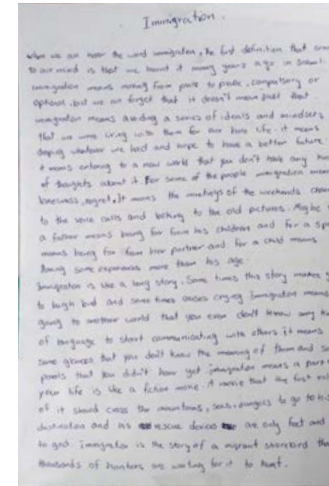 Immigration.
when we can hear the word immigration, the first definition that
to our mind is that we learnt it many years ago in school.
immigration means moving from place to place, compulsory or
optional, but we can forget that it doesn't mean just that
immigration means avoiding a series of ideals and mindsets
that we were living with them for our hole life. it means
whatever we had and hope to have a better future.
it means entering to a new world that you don't have any
of thoughts about it. For some of the people immigration
loneliness, regret. It means the of the weekends
to the voice calls and to the old pictures. Maybe
a father means being far from his children and for a
means being far from her partner and for a child means
some experiences more than his age.
Immigration is like a long story. Some times this story makes
to laugh loud and some times causes crying immigration means
going to another world that you even don't know any
of language to start communicating with others it means
some that you don't know the meaning of them and
that you didn't have yet immigration means a part
your life is like a fiction movie. A movie that the first
of it should cross the mountains, seas, dangers to go to his
destination and his rescue devices are only feet and
to god. immigration is the story of a migrant
thousands of hunters are waiting for it to hunt.